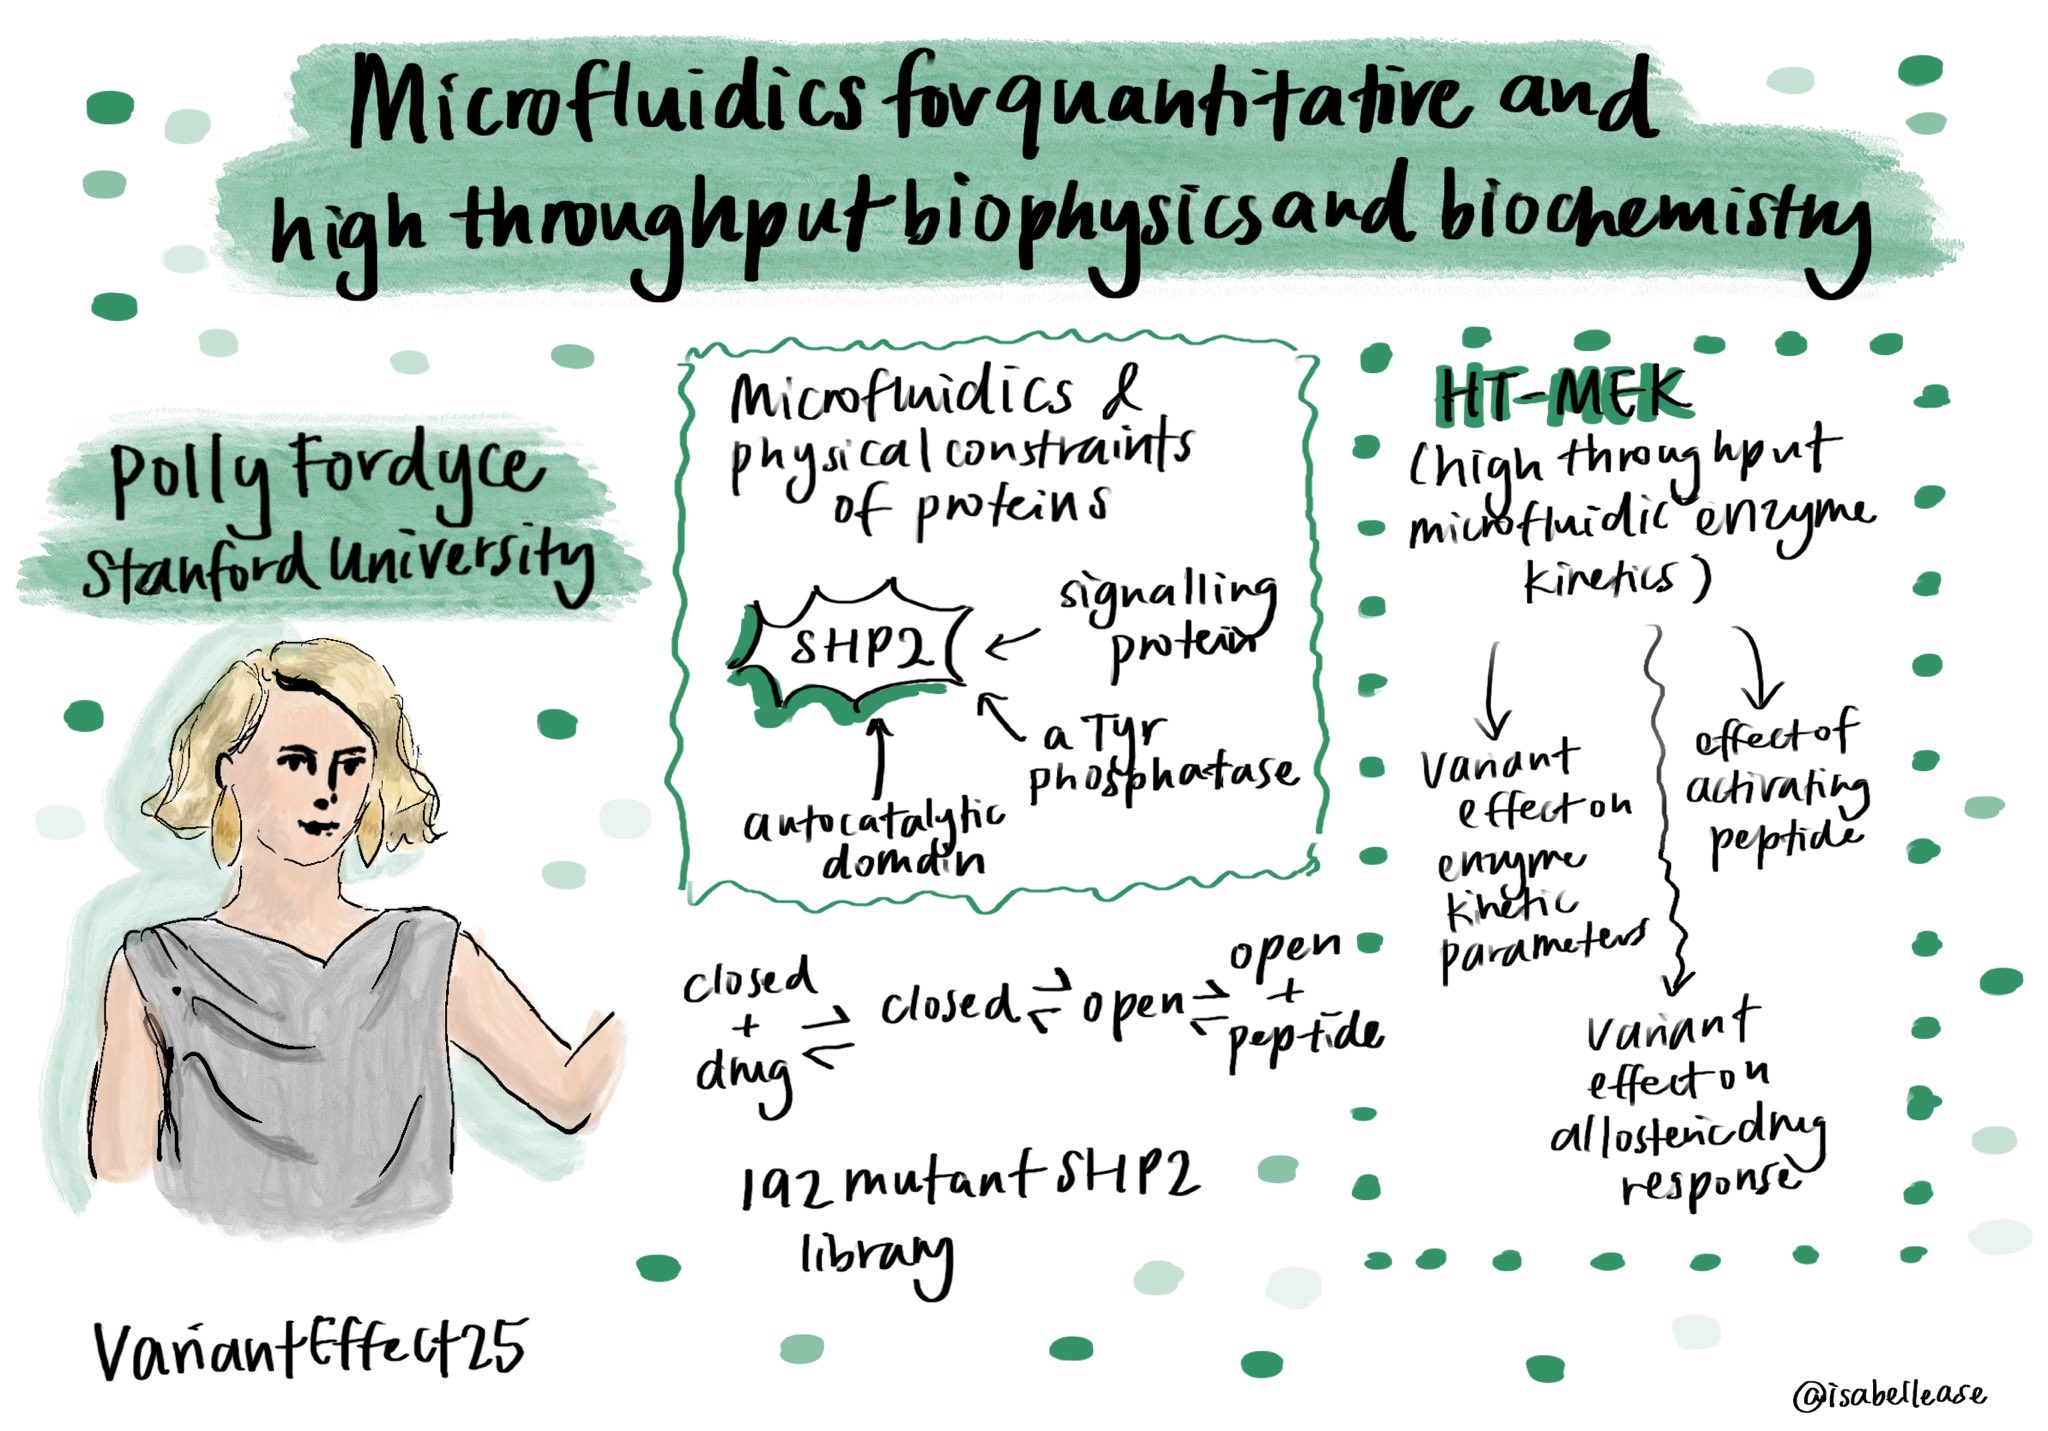 Microfluidics for quantitative and
high throughput biophysics and biochemistry
Polly Fordyce
Stanford University
Microfluidics &
physical constraints
of proteins
SHP2
signalling
protein
a Tyr
phosphatase
autocatalytic
domain
closed
+
drug
⇌
closed
⇌
open
⇌
open
+
peptide
192 mutant SHP2
library
HT-MEK
(high throughput
microfluidic enzyme
kinetics)
variant
effect on
enzyme
kinetic
parameters
effect of
activating
peptide
variant
effect on
allosteric drug
response
VariantEffect25
@isabellease